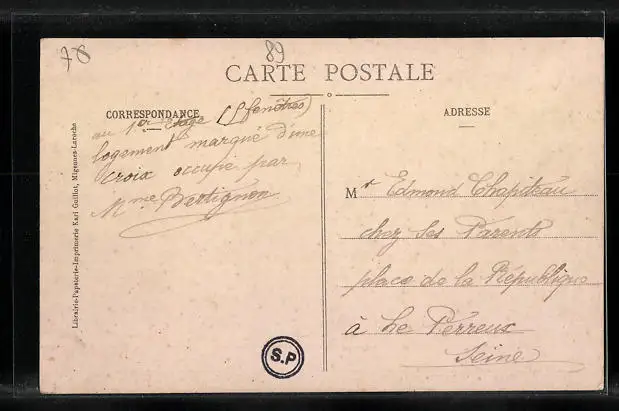 78
89
CARTE POSTALE
CORRESPONDANCE
au 1er étage (5 fenêtres)
logement marqué d'une
croix occupé par
Mme Bertignon
ADRESSE
Mr Edmond Chapiteau
chez ses Parents
place de la République
à Le Perreux
Seine
Librairie-Papeterie-Imprimerie Karl Guillot, Migennes-Laroche
S.P